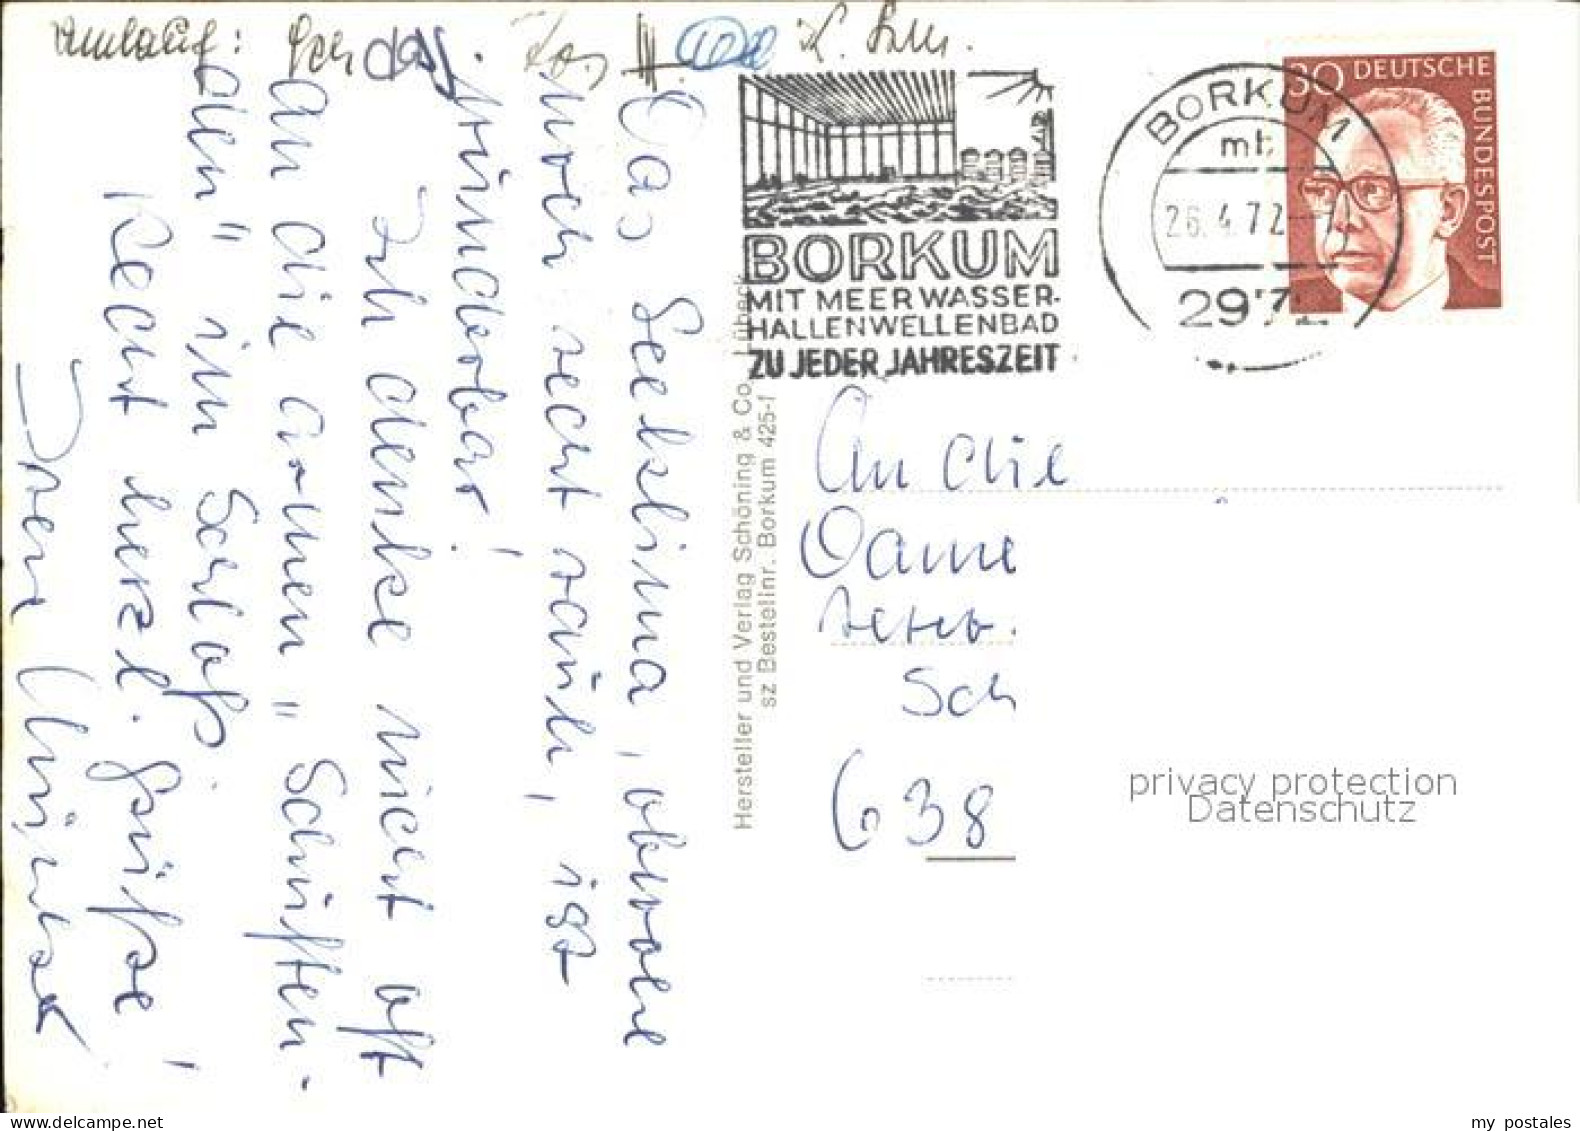 Umlauf:
BORKUM
MIT MEERWASSER-
HALLENWELLENBAD
ZU JEDER JAHRESZEIT
BORKUM 1
mb
26.4.72
2972
30 DEUTSCHE
BUNDESPOST
Das Seeklima, obwohl
noch recht rauh, ist
wunderbar!
Ich denke nicht oft
an die armen "Schriften-
den" im Schloß.
Recht herzl. Grüße!
Hersteller und Verlag Schöning & Co, Lübeck
sz Bestellnr. Borkum 425-1
An die
Dame
Sch
638
privacy protection
Datenschutz
my postales